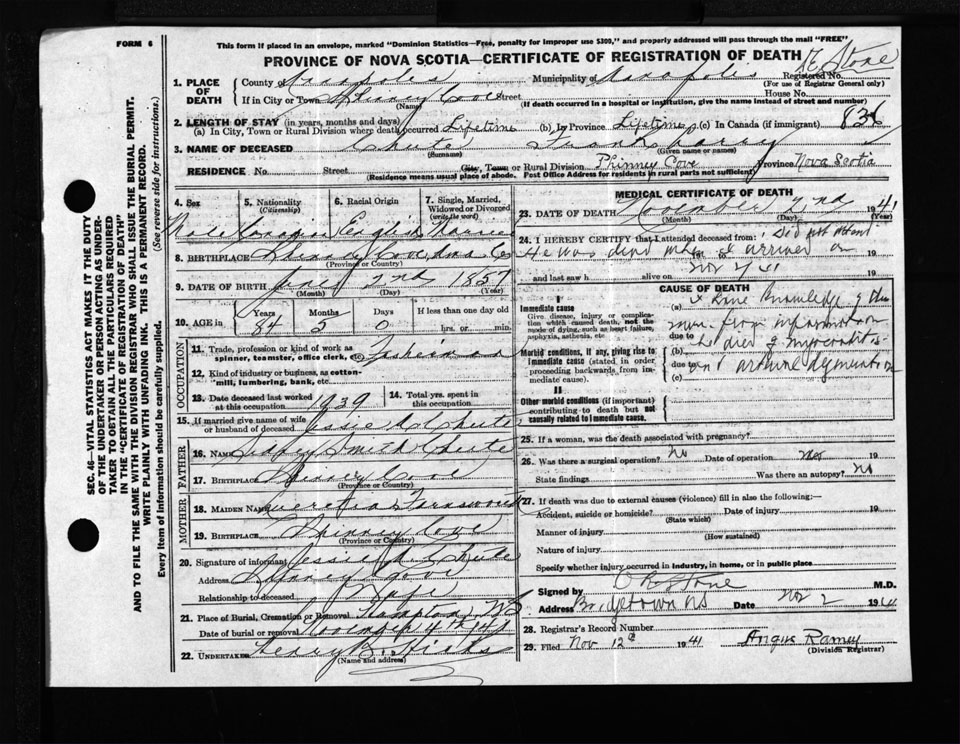 FORM 6
This form if placed in an envelope, marked "Dominion Statistics—Free, penalty for improper use $300," and properly addressed will pass through the mail "FREE"
PROVINCE OF NOVA SCOTIA—CERTIFICATE OF REGISTRATION OF DEATH
Stone
1. PLACE OF DEATH
County of Annapolis Municipality of Annapolis Registered No.
(For use of Registrar General only)
If in City or Town Phinney Cove Street House No.
(Name) (If death occurred in a hospital or institution, give the name instead of street and number)
2. LENGTH OF STAY (in years, months and days)
(a) In City, Town or Rural Division where death occurred Lifetime (b) In Province Lifetime (c) In Canada (if immigrant)
836
3. NAME OF DECEASED Chute
(Surname) (Given name or names)
RESIDENCE No. Street City, Town or Rural Division Phinney Cove Province Nova Scotia
(Residence means usual place of abode. Post Office Address for residents in rural parts not sufficient)
4. Sex 5. Nationality (Citizenship) 6. Racial Origin 7. Single, Married, Widowed or Divorced (write the word)
Male Canadian English Married
8. BIRTHPLACE Phinney Cove Anna Co
(Province or Country)
9. DATE OF BIRTH 2nd 1857
(Month) (Day) (Year)
10. AGE in Years Months Days If less than one day old
84 5 0 hrs. or min.
OCCUPATION
11. Trade, profession or kind of work as spinner, teamster, office clerk, etc. Fisherman
12. Kind of industry or business, as cotton-mill, lumbering, bank, etc.
13. Date deceased last worked at this occupation 1939 14. Total yrs. spent in this occupation
15. If married give name of wife or husband of deceased Jessie Chute
FATHER
16. NAME Smith Chute
17. BIRTHPLACE Phinney Cove
(Province or Country)
MOTHER
18. MAIDEN NAME Farnsworth
19. BIRTHPLACE Phinney Cove
(Province or Country)
20. Signature of informant Jessie Chute
Address Phinney Cove
Relationship to deceased Wife
21. Place of Burial, Cremation or Removal Hampton, NS
Date of burial or removal November 4th 1941
22. UNDERTAKER Hicks
(Name and address)
MEDICAL CERTIFICATE OF DEATH
23. DATE OF DEATH November 2nd 1941
(Month) (Day) (Year)
24. I HEREBY CERTIFY that I attended deceased from: I Did not attend
He was dead when I arrived on
19 to 19
and last saw h alive on Nov 2/41 19
CAUSE OF DEATH
I
Immediate cause
Give disease, injury or complication which caused death, not the mode of dying, such as heart failure, asphyxia, asthenia, etc.
(a) knowledge of
due to from information
Morbid conditions, if any, giving rise to immediate cause (stated in order proceeding backwards from immediate cause).
(b) he died of myocarditis
due to
(c)
II
Other morbid conditions (if important) contributing to death but not causally related to immediate cause.
25. If a woman, was the death associated with pregnancy?
26. Was there a surgical operation? No Date of operation 19
State findings Was there an autopsy? No
27. If death was due to external causes (violence) fill in also the following:—
Accident, suicide or homicide? Date of injury 19
(State which)
Manner of injury
(How sustained)
Nature of injury
Specify whether injury occurred in industry, in home, or in public place
Signed by Stone M.D.
Address Bridgetown NS Date Nov 2 1941
28. Registrar's Record Number
29. Filed Nov 12th 1941 Angus Ramey
(Division Registrar)
SEC. 46—VITAL STATISTICS ACT MAKES IT THE DUTY
OF THE UNDERTAKER OR PERSON ACTING AS UNDER-
TAKER TO OBTAIN ALL THE PARTICULARS REQUIRED
IN THE "CERTIFICATE OF REGISTRATION OF DEATH"
AND TO FILE THE SAME WITH THE DIVISION REGISTRAR WHO SHALL ISSUE THE BURIAL PERMIT.
WRITE PLAINLY WITH UNFADING INK. THIS IS A PERMANENT RECORD.
Every item of information should be carefully supplied. (See reverse side for instructions.)